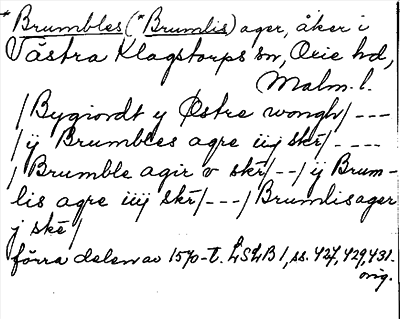 *Brumbles (*Brumlis) ager, åker i
Västra Klagstorps sn, Oxie hd,
Malm. l.
/Bygiordt y Østre wongh/ ---
/ÿ Brumbles agre iiij skr/ ----
/ Brumble agir v skr/--/ ÿ Brum-
lis agre iiij skr/---/ Brumlisager
j skr/
förra delen av 1570-t. LSLB 1, ss. 427, 429, 431.
orig.